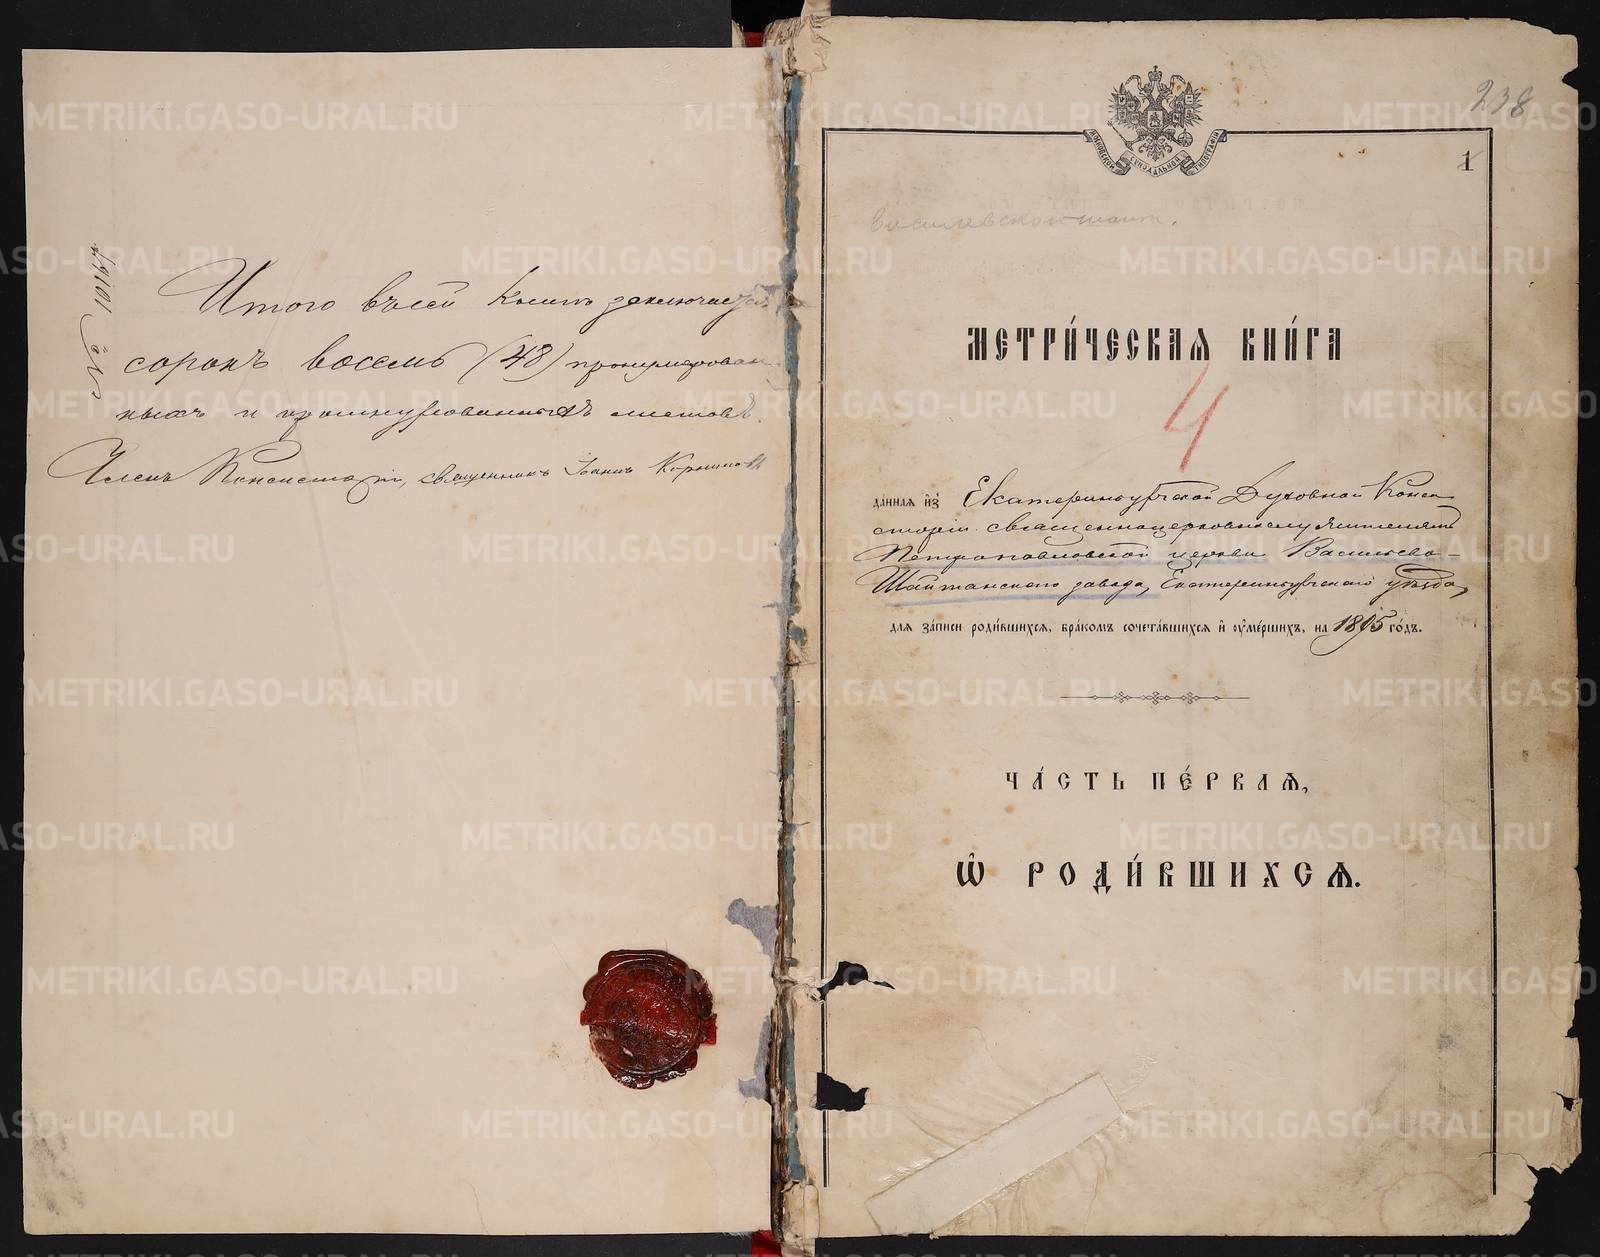 Итого въ сей Книгѣ заключается
сорокъ восемь (48) пронумерован
ныхъ и прошнурованныхъ листовъ.
Членъ Консисторіи, священникъ Іоаннъ
№ 10167
238
1
МОСКОВСКОЙ СѴНОДАЛЬНОЙ ТИПОГРАФІИ
Василевскошайт.
МЕТРИ́ЧЕСКАѦ КНИ́ГА
4
да́нная и҆з̾ Екатеринбургской Духовной Конси
сторіи священноцерковнослужителямъ
Петропавловской церкви Васильево-
Шайтанскаго завода, Екатеринбургскаго уѣзда,
для за́писи роди́вшихся, бра́комъ сочета́вшихся и҆ ᲂу҆ме́ршихъ, на 1895 го́дъ.
ЧА́СТЬ ПЕ́РВАѦ,
Ѡ҆ РОДИ́ВШИХСѦ.
METRIKI.GASO-URAL.RU